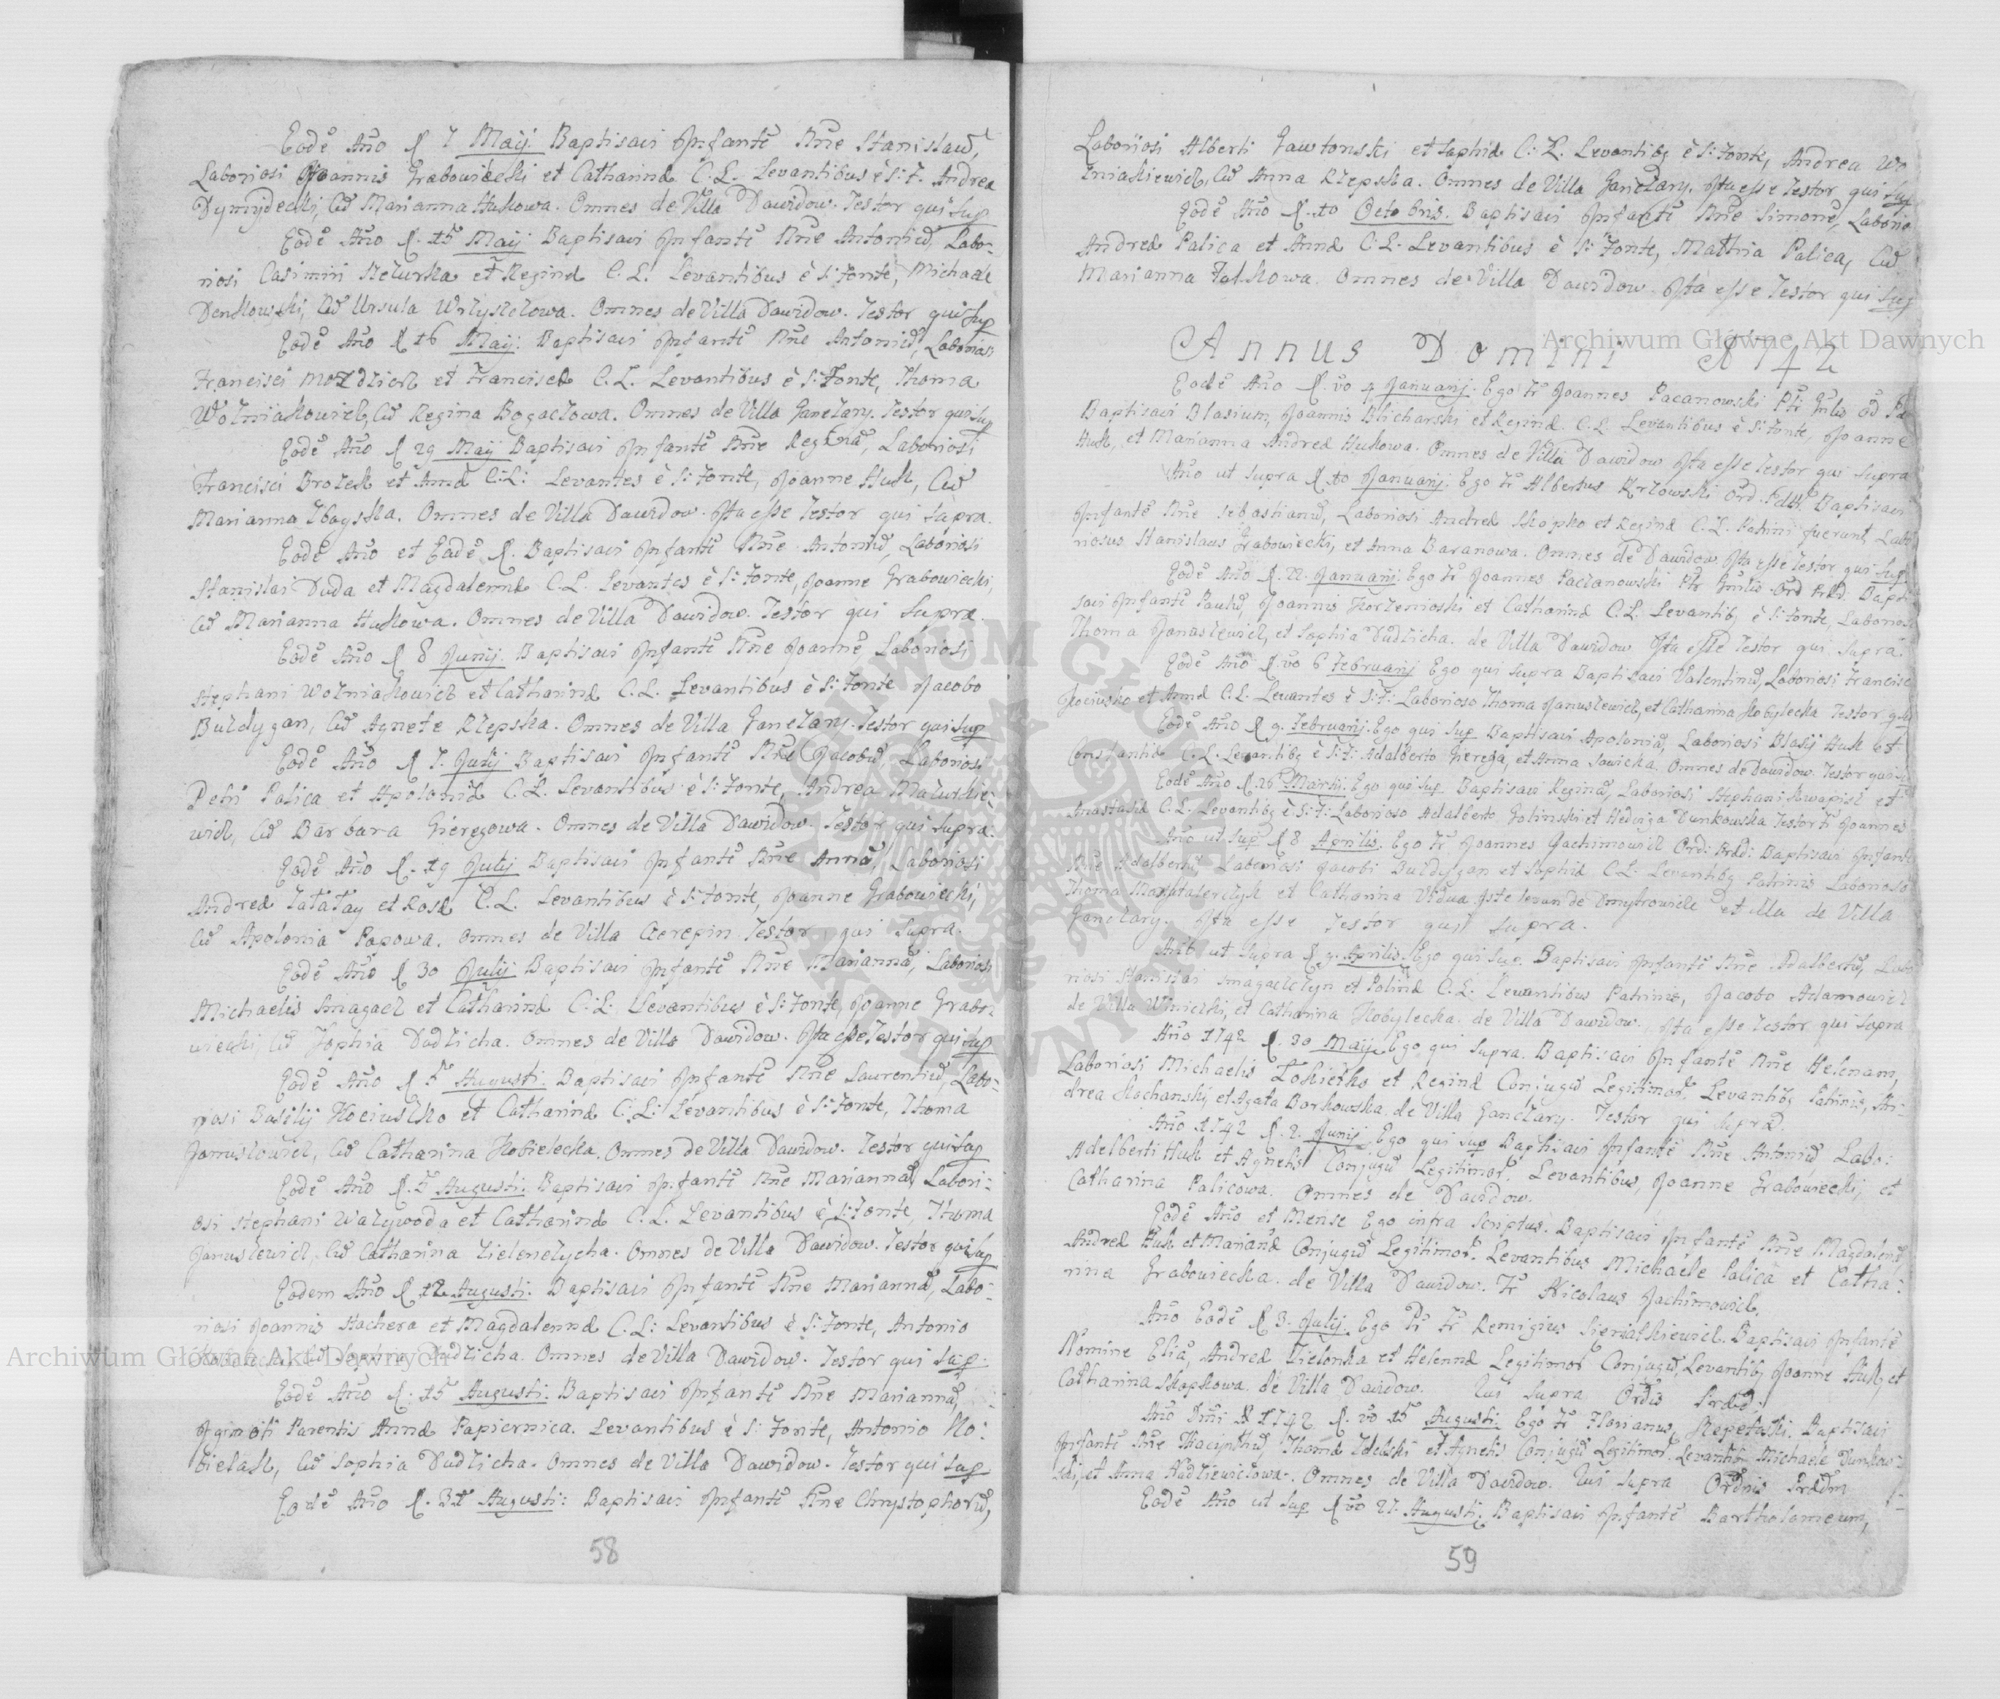 Eodē Año ℟ 7 Maij Baptisavi Infantē Nñe Stanislaū,
Laboriosi Joannis Grabowiecki et Catharinæ C. L. Levantibus è S. F. Andrea
Dymijdecki, Cū Marianna Hukowa. Omnes de Villa Dawidow. Testor qui Sup
Eodē Año ℟. 15 Maij Baptisavi Infantē Nñe Antoniū, Labo-
riosi Casimiri et Reginæ C. L. Levantibus è S. Fonte, Michaele
Denkowski, Cū Ursula. Omnes de Villa Dawidow. Testor qui Sup
Eodē Año ℟ 16 Maij: Baptisavi Infantē Nñe Antoniū, Laborios
Francisci Mozdzierz et Franciscæ C. L. Levantibus è S. Fonte, Thoma
Wozniakowicz, Cū Regina Bogaczowa. Omnes de Villa Ganczary. Testor qui Sup
Eodē Año ℟ 29 Maij Baptisavi Infantē Nñe Reginā, Laboriosi
Francisci Brozek et Annæ C: L: Levantes è S. Fonte, Joanne Huk, Cū
Marianna Zbayska. Omnes de Villa Dawidow. Ita esse Testor qui Supra.
Eodē Año et Eadē ℟. Baptisavi Infantē Nñe Antoniū, Laboriosi
Stanislai Duda et Magdalennæ C. L. Levantes è S. Fonte, Joanne Grabowiecki,
Cū Marianna Hukowa. Omnes de Villa Dawidow. Testor qui Supra.
Eodē Año ℟ 8 Junij. Baptisavi Infantē Nñe Joannē, Laboriosi
Stephani Wozniakowicz et Catharinæ C. L. Levantibus è S. Fonte Jacobo
Buldygan, Cū Agnete Rzepska. Omnes de Villa Ganczary. Testor qui Sup
Eodē Año ℟ 7. Julij Baptisavi Infantē Nñe Jacobū, Laboriosi
Petri Palica et Apoloniæ C. L. Levantibus è S. Fonte, Andrea Mazurkie-
wicz, Cū Barbara Gieregowa. Omnes de Villa Dawidow. Testor qui Supra.
Eodē Año ℟. 19 Julij Baptisavi Infantē Nñe Annā, Laboriosi
Andreæ Tatatay et Rosæ C. L. Levantibus è S. Fonte, Joanne Grabowiecki,
Cū Apolonia Papowa. Omnes de Villa Czerepin Testor qui Supra.
Eodē Año ℟ 30 Julij Baptisavi Infantē Nñe Mariannā, Laboriosi
Michaelis Smagacz et Catharinæ C: L: Levantibus è S. Fonte, Joanne Grabo-
wiecki, Cū Zophia Dudzicha. Omnes de Villa Dawidow. Ita esse Testor qui Sup
Eodē Año ℟ 5 Augusti: Baptisavi Infantē Nñe Laurentiū, Labo-
riosi Basilij Kociuszko et Catharinæ C: L: Levantibus è S. Fonte, Thoma
Januszowicz, Cū Catharina Kobielecka. Omnes de Villa Dawidow. Testor qui Sup
Eodē Año ℟. 5 Augusti: Baptisavi Infantē Nñe Mariannā, Labori-
osi Stephani Walywoda et Catharinæ C. L. Levantibus è S. Fonte, Thoma
Januszewicz, Cū Catharina Zielenczycha. Omnes de Villa Dawidow. Testor qui Sup
Eodem Año ℟ 12 Augusti: Baptisavi Infantē Nñe Mariannā, Labo-
riosi Joannis Stachera et Magdalennæ C. L: Levantibus è S. Fonte, Antonio
Cū Sophia Dudzicha. Omnes de Villa Dawidow. Testor qui Sup.
Eodē Año ℟: 15 Augusti: Baptisavi Infantē Nñe Mariannā,
Ignoti Parentis Annæ Papiernica. Levantibus è S. Fonte, Antonio Ko:
bielak, Cū Sophia Dudzicha. Omnes de Villa Dawidow. Testor qui Sup
Eodē Año ℟. 31 Augusti: Baptisavi Infantē Nñe Chrystophorū,
58
Laboriosi Alberti Gawronski et Sophiæ C: L. Levantibq è S: Fonte, Andrea Wo
zniakiewicz, Cū Anna Rzepska. Omnes de Villa Ganczary. Ita esse Testor qui Sup
Eodē Año ℟. 10 Octobris. Baptisavi Infantē Nñe Simonē, Laborio
Andreæ Palica et Annæ C. L. Levantibus è S: Fonte, Mathia Palica, Cū
Marianna Falkowa. Omnes de Villa Dawidow. Ita esse Testor qui Sup
Annus Domini 1742
Eodē Año ℟. vo 4 Januarij. Ego Fr Joannes Pacanowski
Baptisavi Blasium, Joannis Blicharski et Reginæ C. L. Levantibus è S: Fonte, Joanne
Huk, et Marianna Andreæ Hukowa. Omnes de Villa Dawidow Ita esse Testor qui Supra
Año ut Supra ℟ 10 Januarij. Ego Fr Albertus Krzowski Ord. Baptisavi
Infantē Nñe Sebastianū, Laboriosi Andreæ Skopko et Reginæ C. L. Patrini fuerunt Labo
riosus Stanislaus Grabowiecki, et Anna Baranowa. Omnes de Dawidow Ita esse Testor qui Sup
Eodē Año ℟. 22. Januarij. Ego Fr Joannes Paczanowski Ord Præd. Bapti
savi Infantē Paulū, Joannis Korzenioski et Catharinæ C. L. Levantibq è S: Fonte, Laborios
Thoma Januszewicz, et Sophia Dudzicha. de Villa Dawidow Ita esse Testor qui Supra
Eodē Año ℟. vo 6 Februarij Ego qui Supra Baptisavi Valentinū, Laboriosi Francisci
Kociusko et Annæ C. L. Levantes è S: F: Laborioso Thoma Januszewicz, et Catharina Kobylecka Testor qui
Eodē Año ℟ 9. Februarij. Ego qui Sup Baptisavi Apoloniā, Laboriosi Blasij Huk et
Constantiæ C. L. Levantibq è S: F: Adalberto Gierega, et Anna Sawicka. Omnes de Dawidow. Testor qui Su
Eodē Año ℟. 26 Martii. Ego qui Sup Baptisavi Reginā, Laboriosi Stephani Kwapisz et
Anastasiæ C. L. Levantibq è S: F: Laborioso Adalberto Golinski et Hedviga Dunkowska Testor Fr Joannes
Año ut Sup ℟ 8 Aprilis. Ego Fr. Joannes Jachimowicz Ord: Præd: Baptisavi Infantē
Nñe Adalbertū Laboriosi Jacobi Buldygan et Sophiæ C. L. Levantibq Patrinis Laborioso
Thoma et Catharina Vidua Iste de Dmytrowicze et illa de Villa
Ganczary. Ita esse Testor qui Supra.
Año ut Supra ℟ 9. Aprilis. Ego qui Sup. Baptisavi Infantē Nñe Adalbertū, Labo
riosi Stanislai Smagaczczyn et Polinæ C. L. Levantibus Patrinis, Jacobo Adamowicz
de Villa Winiczki, et Catharina Kobylecka. de Villa Dawidow. Ita esse Testor qui Supra
Año 1742 ℟. 30 Maij Ego qui Supra. Baptisavi Infantē Nñe Helenam,
Laboriosi Michaelis et Reginæ Conjugū Legitimor. Levantibq Patrinis, An-
drea Kochanski, et Agata Borkowska. de Villa Ganczary. Testor qui Supra.
Año 1742 ℟. 2. Junij. Ego qui Sup Baptisavi Infantē Nñe Antoniū Labo:
Adelberti Huk et Agnetis Conjugū Legitimor. Levantibus, Joanne Grabowiecki, et
Catharina Palicowa. Omnes de Dawidow.
Eodē Año et Mense Ego infra Scriptus. Baptisavi Infantē Nñe Magdalenā,
Andreæ Huk et Mariannæ Conjugū Legitimor. Levantibus Michaele Palica et Catha:
rina Grabowiecka. de Villa Dawidow. Fr Nicolaus Jachimowicz.
Año Eodē ℟ 3. Julij Ego Fr Remigius Baptisavi Infantē
Nomine Eliā, Andreæ Zielonka et Helennæ Legitimor Conjugū, Levantibq Joanne Huk, et
Catharina Skopkowa. de Villa Dawidow. Qui Supra Ordis Præd:
Año Dñi 1742 ℟. vo 15 Augusti: Ego Fr Florianus Baptisavi
Infantē Nñe Hiacynthū, Thomæ Zdelski et Agnetis Conjugū Legitimor. Levantibq Michaele Dunkow:
ski, et Anna Hudziewiczowa. Omnes de Villa Dawidow. Qui Supra Ordinis Prædm
Eodē Año ut Sup ℟ vo 27. Augusti: Baptisavi Infantē Bartholomeum,
59
Archiwum Główne Akt Dawnych
Archiwum Główne Akt Dawnych